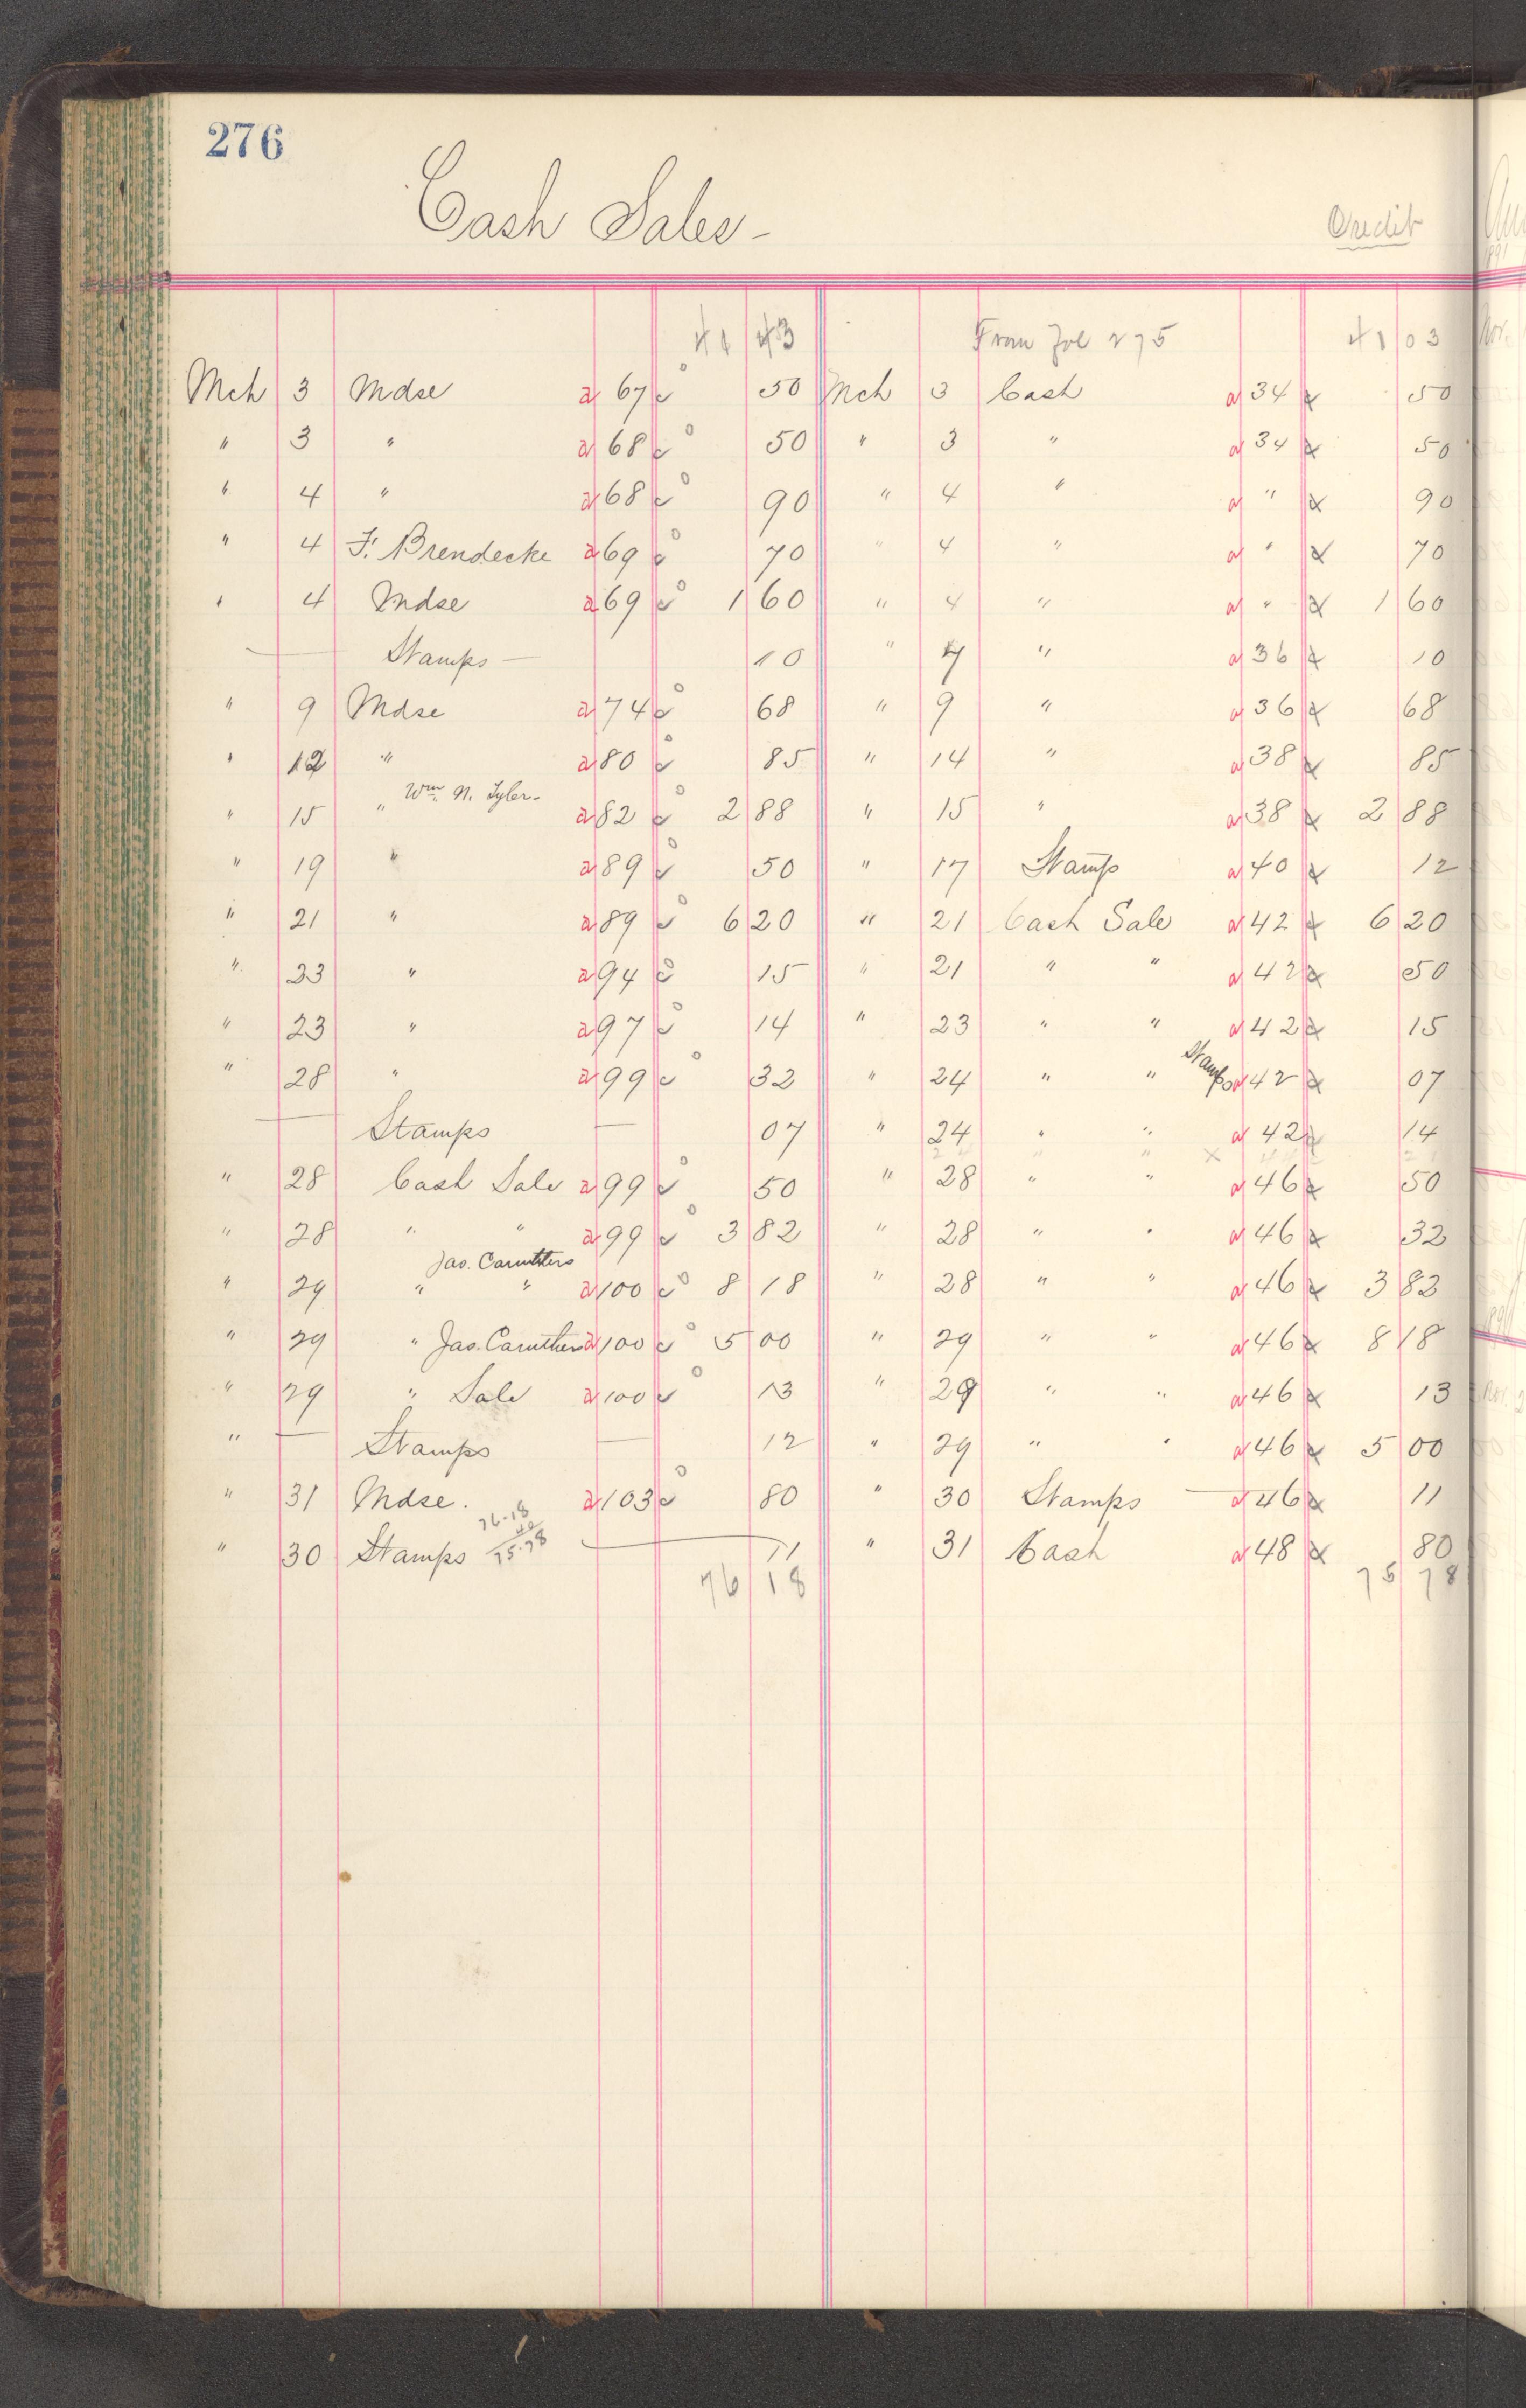 276
Cash Sales - Credit
41 43 From Fol 275 41 03
Mch 3 Mdse a 67 c 50 Mch 3 Cash a 34 50
" 3 " a 68 c 50 " 3 " a 34 50
" 4 " a 68 c 90 " 4 " a " 90
" 4 F. Brendecke a 69 c 70 " 4 " a " 70
" 4 Mdse a 69 c 1 60 " 4 " a " 1 60
— Stamps — 10 " 7 " a 36 10
" 9 Mdse a 74 c 68 " 9 " a 36 68
" 12 " a 80 c 85 " 14 " a 38 85
" 15 " Wm. N. Tyler - a 82 c 2 88 " 15 " a 38 2 88
" 19 " a 89 c 50 " 17 Stamps a 40 12
" 21 " a 89 c 6 20 " 21 Cash Sale a 42 6 20
" 23 " a 94 c 15 " 21 " " a 42 50
" 23 " a 97 c 14 " 23 " " a 42 15
" 28 " a 99 c 32 " 24 " " Stamps a 42 07
— Stamps — 07 " 24 " " a 42 14
" 28 Cash Sale a 99 c 50 " 28 " " a 46 50
" 28 " " a 99 c 3 82 " 28 " " a 46 32
" 29 " Jas. Caruthers " a 100 c 8 18 " 28 " " a 46 3 82
" 29 " Jas. Caruthers a 100 c 5 00 " 29 " " a 46 8 18
" 29 " Sale a 100 c 13 " 29 " " a 46 13
" — Stamps — 12 " 29 " " a 46 5 00
" 31 Mdse. a 103 c 80 " 30 Stamps — a 46 11
76.18
40
75.78
" 30 Stamps — 11 " 31 Cash a 48 80
76 18 75 78